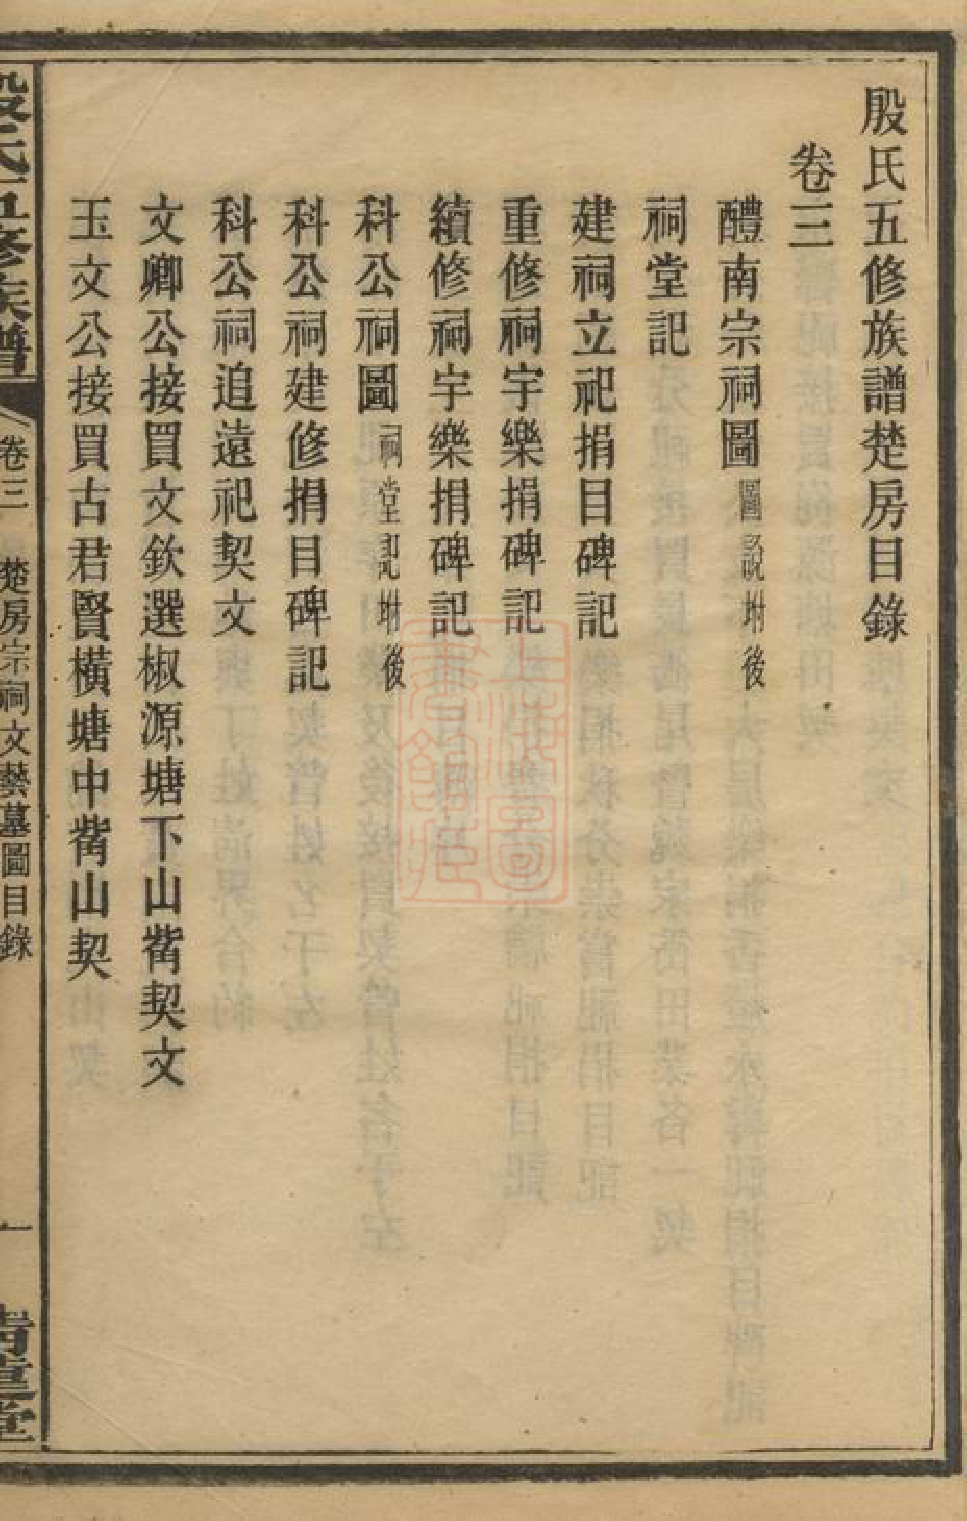 殷氏五修族譜楚房目錄
卷三
醴南宗祠圖圖說坿後
祠堂記
建祠立祀捐目碑記
重修祠宇樂捐碑記
續修祠宇樂捐碑記
科公祠圖祠堂記坿後
科公祠建修捐目碑記
科公祠追遠祀契文
文卿公接買文欽選椒源塘下山嵴契文
玉文公接買古君賢橫塘中嵴山契
殷氏五修族譜
卷三
楚房宗祠文藝墓圖目錄
一
上海圖書館藏